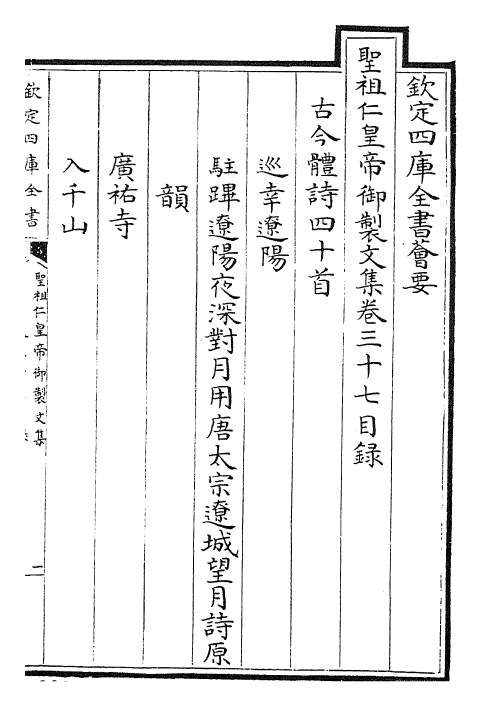 欽定四庫全書薈要
聖祖仁皇帝御製文集卷三十七目録
古今體詩四十首
巡幸遼陽
駐蹕遼陽夜深對月用唐太宗遼城望月詩原
韻
廣祐寺
入千山
欽定四庫全書
聖祖仁皇帝御製文集
二